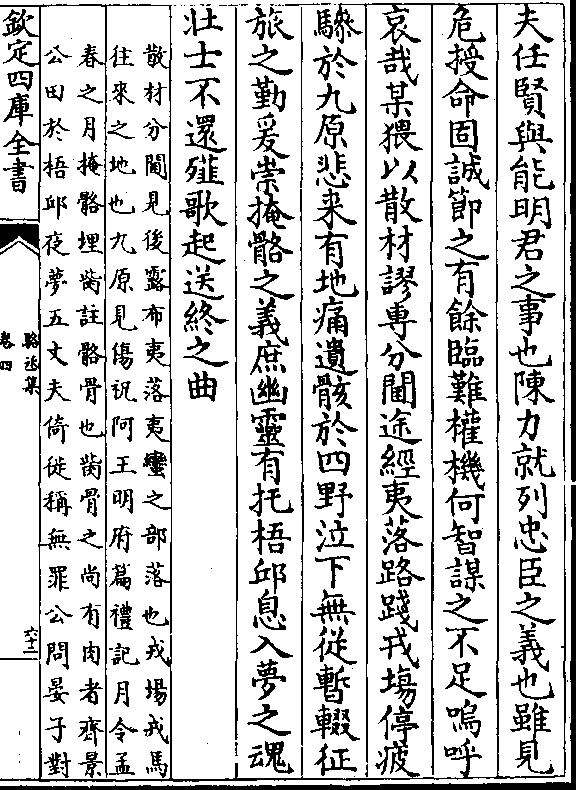 夫任賢與能明君之事也陳力就列忠臣之義也雖見
危授命固誠節之有餘臨難權機何智謀之不足嗚呼
哀哉某猥以散材謬專分閫途經夷落路踐戎塲停疲
驂於九原悲来有地痛遺骸於四野泣下無從暫輟征
旅之勤爰崇掩骼之義庶幽靈有托梧邱息入夢之魂
壮士不還薤歌起送終之曲
散材分閫見後露布夷落夷蠻之部落也戎場戎馬
往來之地也九原見傷祝阿王明府篇禮記月令孟
春之月掩骼埋胔註骼骨也胔骨之尚有肉者齊景
公田於梧邱夜夢五丈夫倚徙稱無罪公問晏子對
欽定四庫全書
駱丞集
卷四
六十二